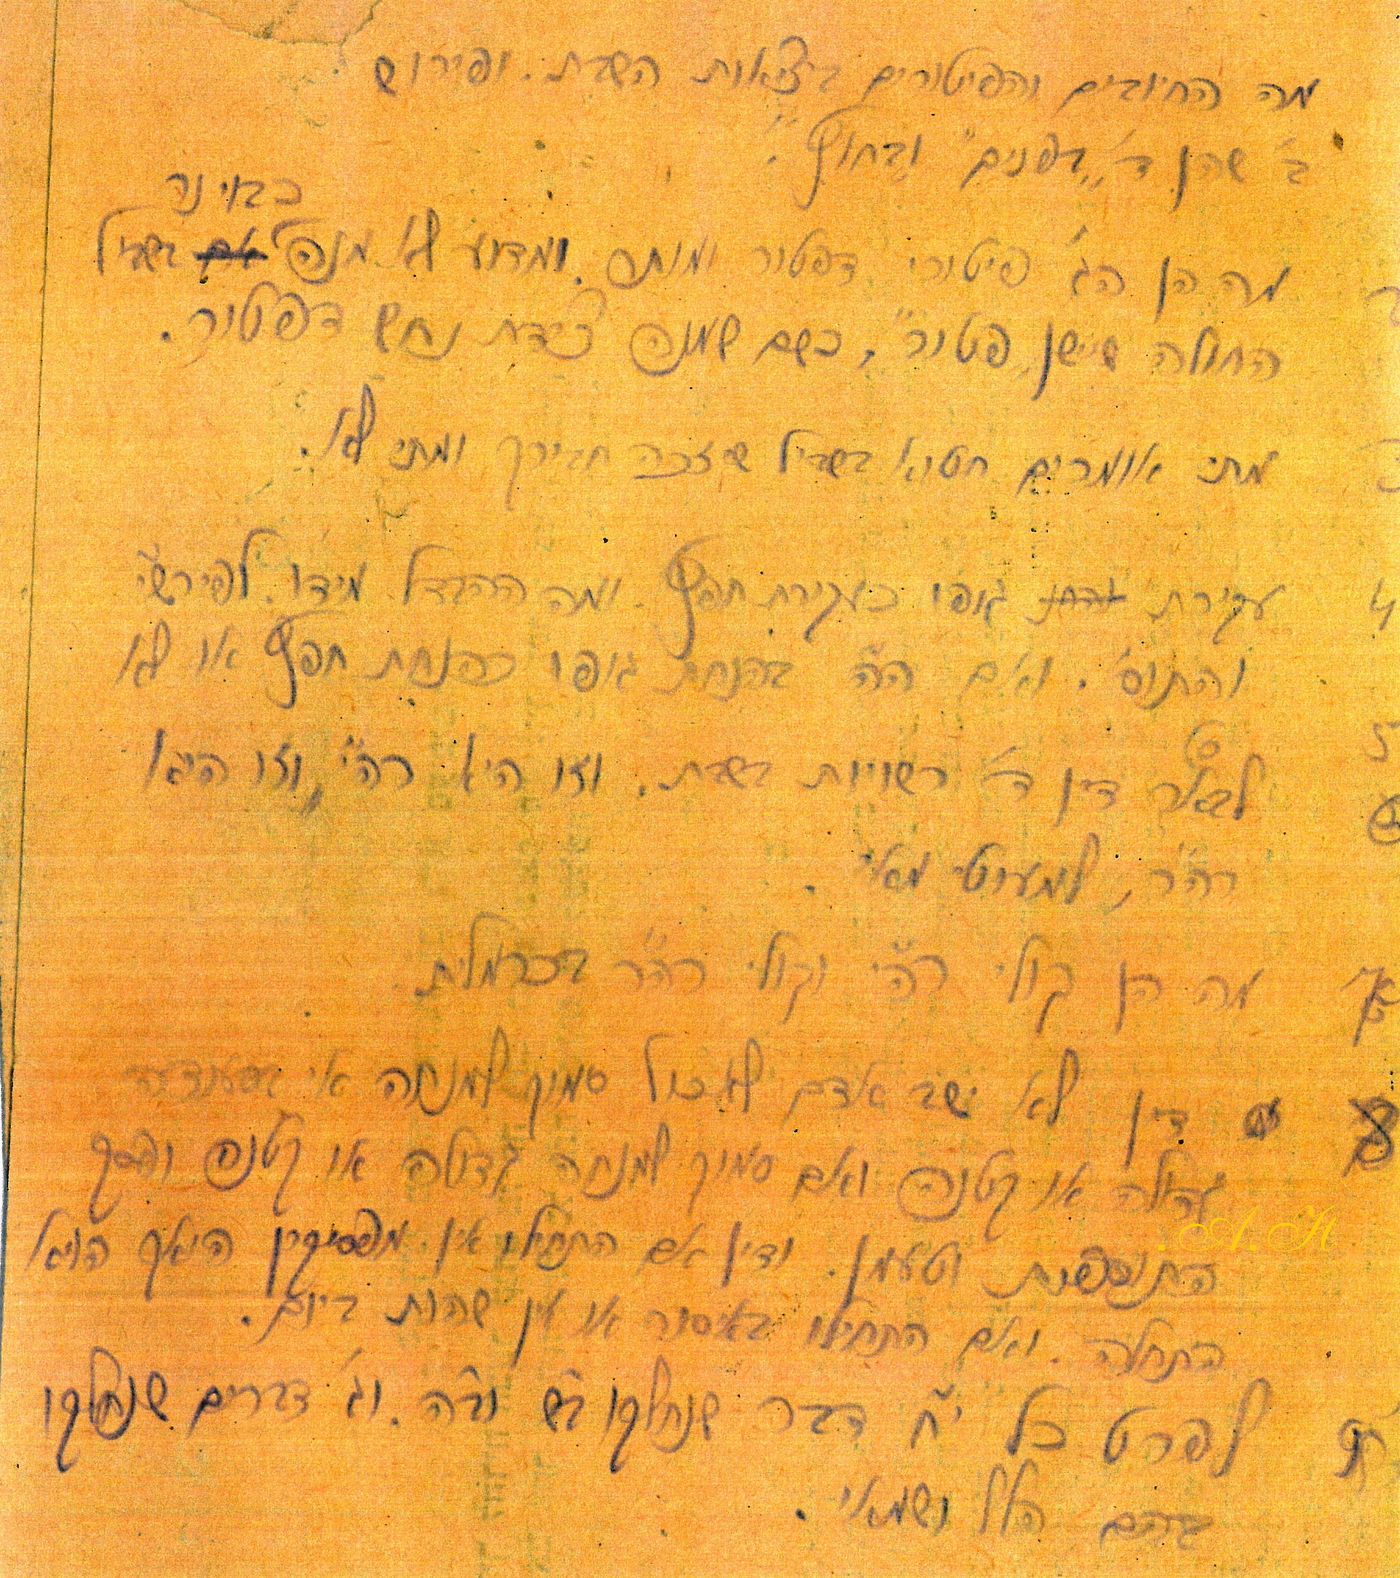 מה החיובים והפיטורים ביציאות השבת. ופירוש
ב' שהן ד' "בפנים" ובחוץ".
כגוי נה
מה הן הג' פיטורי דפטור ומותר. ומדוע לא מנה בשביל
החולה שיישן "פטור", כשם שמנה צידת נחש דפטור.
מתי אומרים חטוא בשביל שיזכה חבירך ומתי לא.
עקירת גופו כעקירת חפץ. ומה ההבדל מידו. לפירש"י
והתוס'. ואם הה הנחת גופו כהנחת חפץ או לא
לבאר דין ד' רשויות בשבת. וזו היא רה"י, וזו היא
רה"ר, למעוטי מאי.
מה הן קולי רה"י וקולי רה"ר בכרמלית.
דין לא ישב אדם לאכול סמוך למנחה אי בסעודה
גדולה או קטנה ואם סמוך למנחה גדולה או קטנה ופסק
התוספות וטעמן. ודין אם התחילו אין מפסיקין היאך הויא
התחלה. ואם התחילו באיסור או אין שהות ביום.
לפרט כל י"ח דבר שנחלקו ב"ש וב"ה. וג' דברים שנחלקו
בהם הלל ושמאי.
A.H.